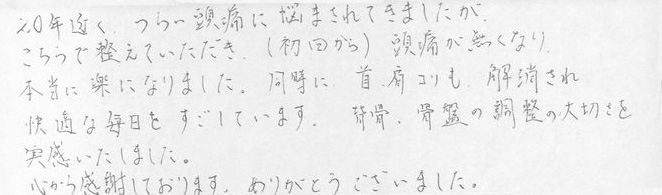 20年近く、つらい頭痛に悩まされてきましたが、
こちらで整えていただき、(初回から)頭痛が無くなり、
本当に楽になりました。同時に、首、肩コリも、解消され
快適な毎日をすごしています。背骨、骨盤の調整の大切さを
実感いたしました。
心から感謝しております。ありがとうございました。